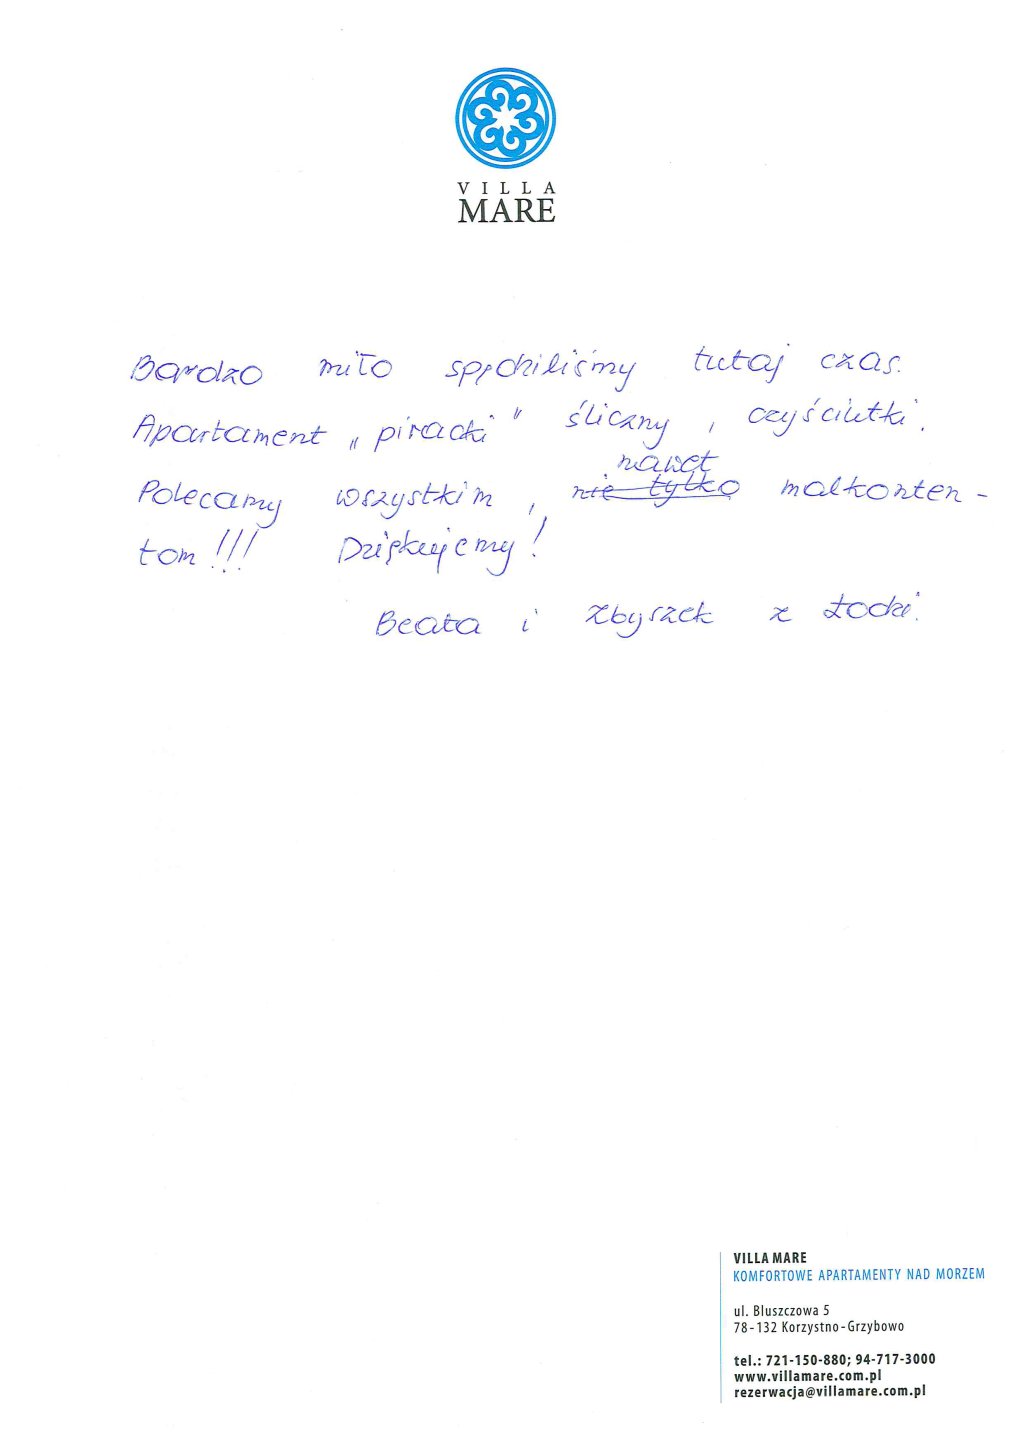 VILLA
MARE
Bardzo miło spędziliśmy tutaj czas.
Apartament „piracki" śliczny, czyściutki.
nawet
Polecamy wszystkim, nie tylko malkonten-
tom!!! Dziękujemy!
Beata i Zbyszek z Łodzi.
VILLA MARE
KOMFORTOWE APARTAMENTY NAD MORZEM
ul. Bluszczowa 5
78-132 Korzystno-Grzybowo
tel.: 721-150-880; 94-717-3000
www.villamare.com.pl
rezerwacja@villamare.com.pl